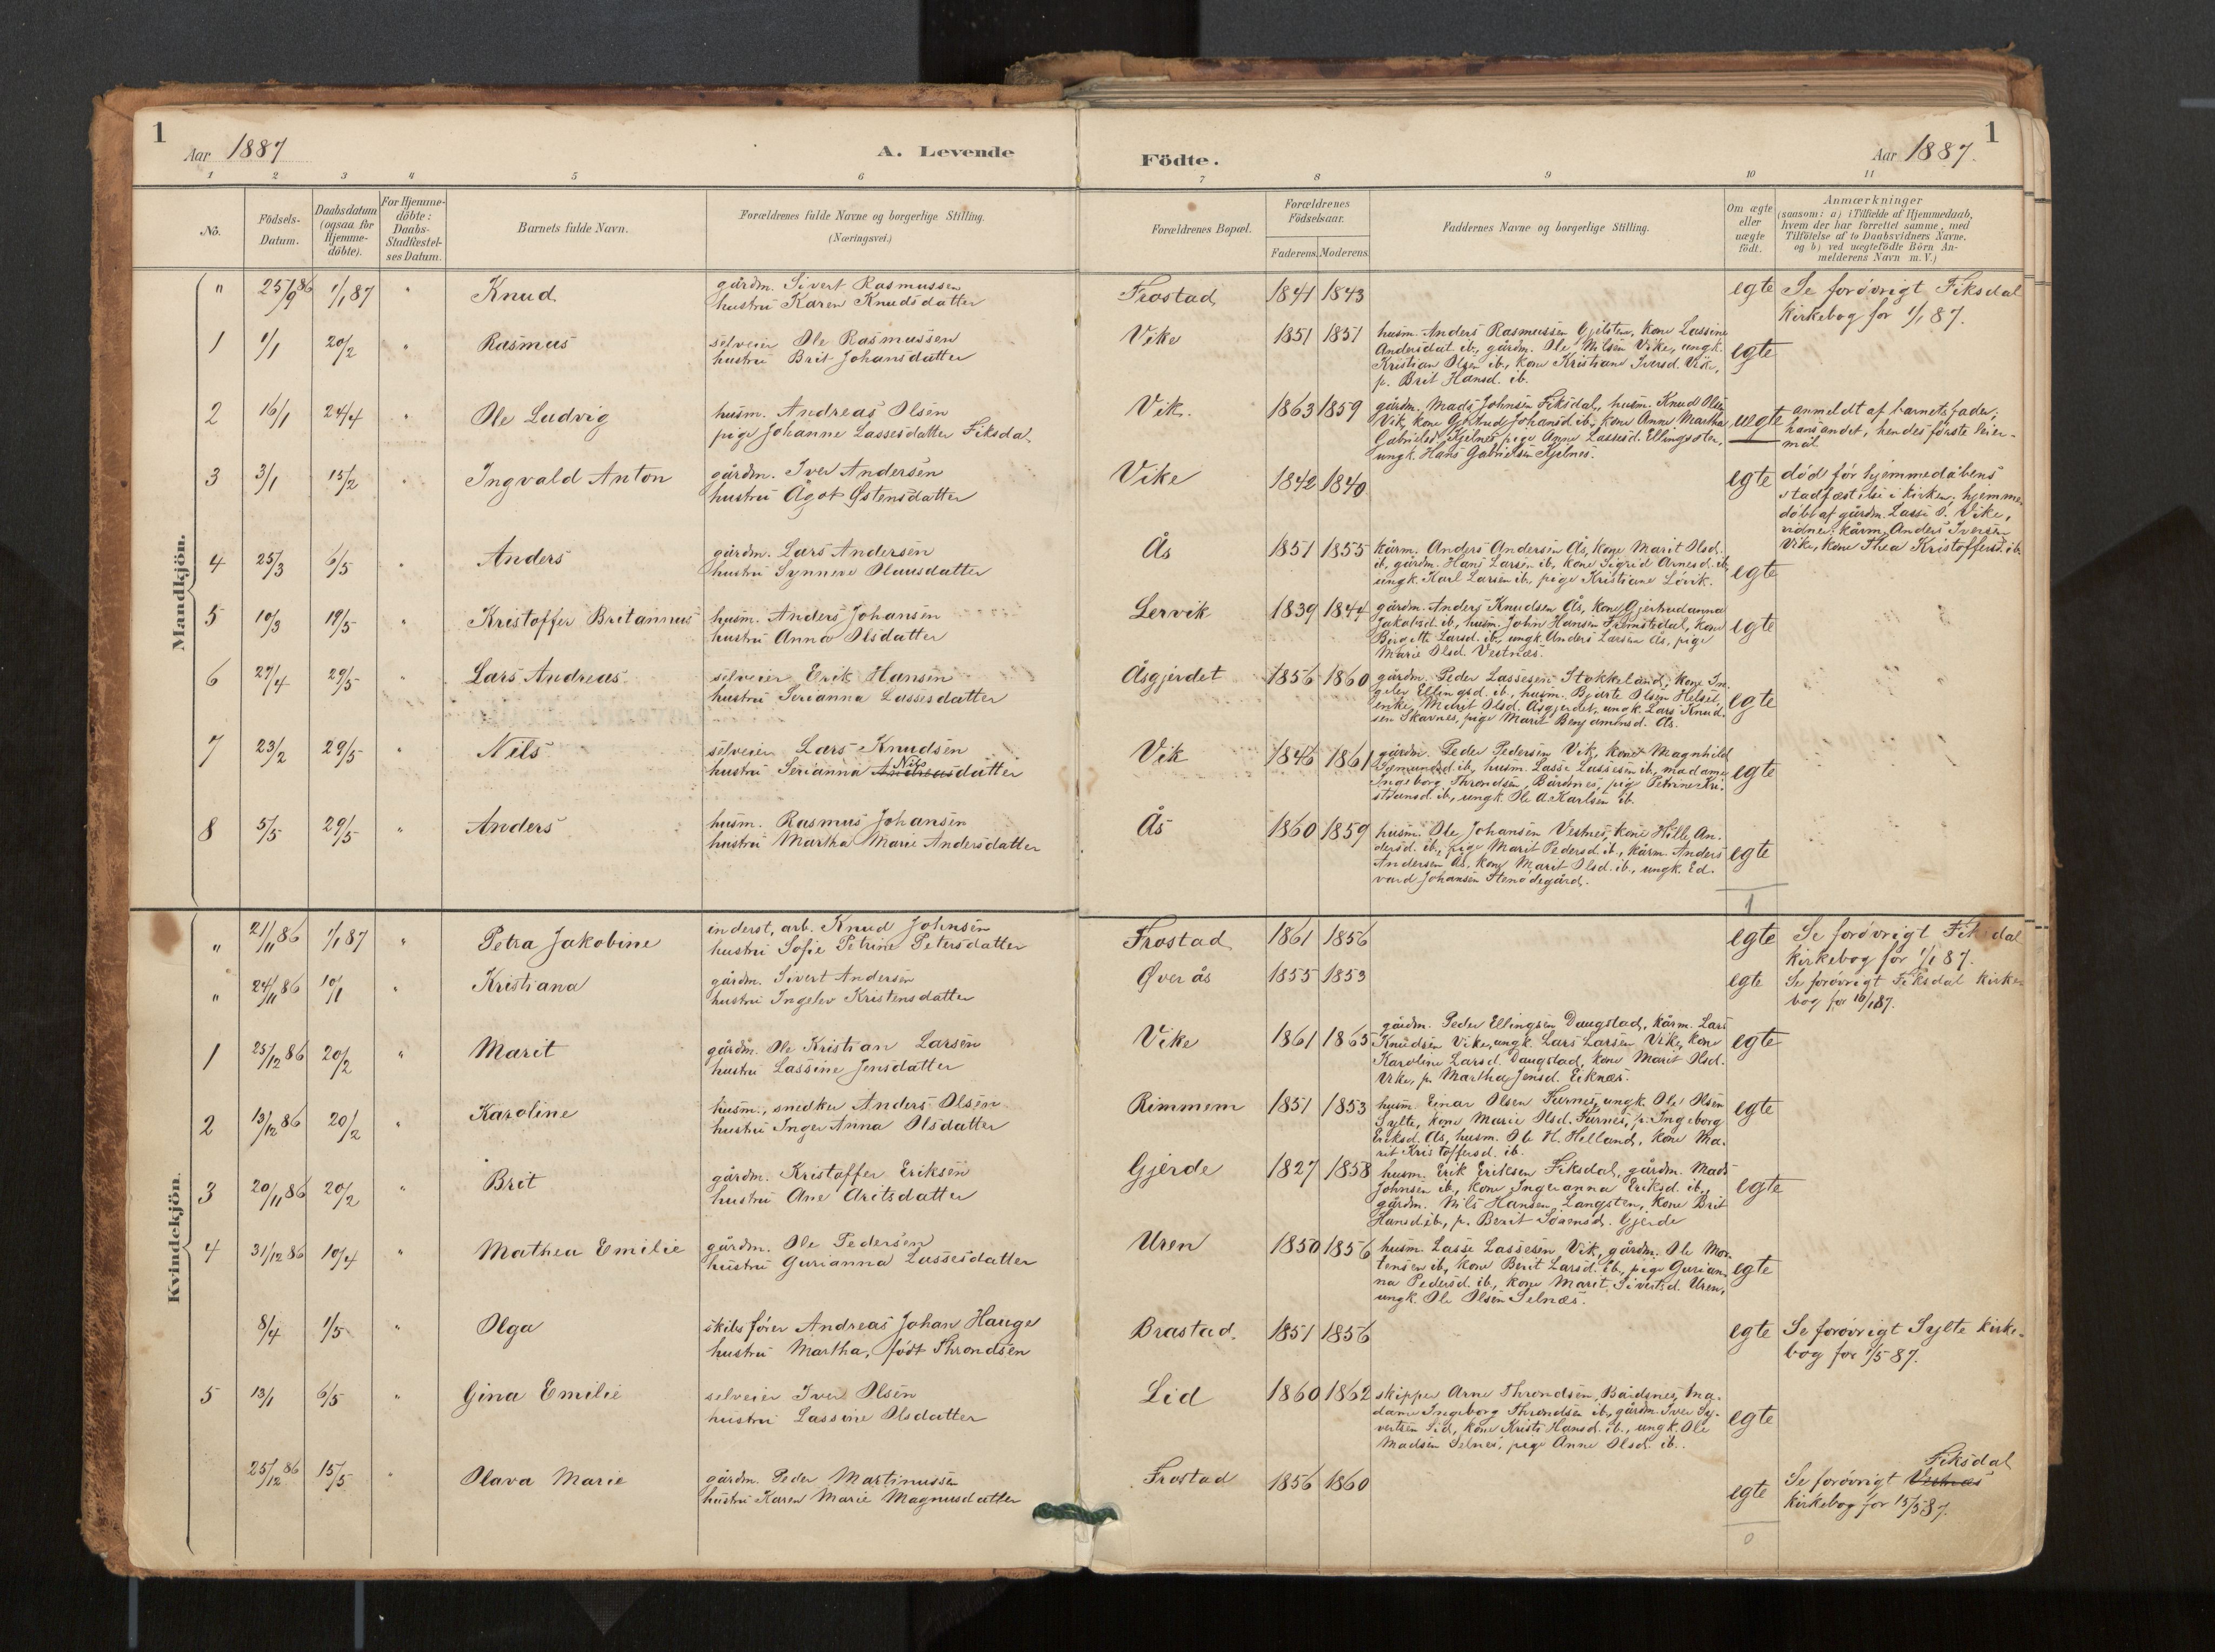 1
Aar 1887
A. Levende
Födte.
Aar 1887.
1
1 2 3 4 5 6 7 8 9 10 11
No.
Födsels-
Datum.
Daabsdatum
(ogsaa for
Hjemme-
döbte).
For Hjemme-
döbte:
Daabs-
Stadfæstel-
ses Datum.
Barnets fulde Navn.
Forældrenes fulde Navne og borgerlige Stilling.
(Næringsvei.)
Forældrenes Bopæl.
Forældrenes
Födselsaar.
Faderens. Moderens.
Faddernes Navne og borgerlige Stilling.
Om ægte
eller
uægte
født.
Anmærkninger
(saasom: a) i Tilfælde af Hjemmedaab,
hvem der har forrettet samme, med
Tilföielse af to Daabsvidners Navne.
og b) ved uægtefödte Börn An-
melderens Navn m. V.)
Mandkjön.
" 25/9 86 1/1 87 " Knud
gårdm. Sivert Rasmussen
hustru Karen Knudsdatter
Frostad 1841 1843 egte
Se forøvrigt Fiksdal
kirkebog for 1/1 87.
1 1/1 20/2 " Rasmus
selveier Ole Rasmussen
hustru Brit Johansdatter
Vike 1851 1851
husm. Anders Rasmussen Gjelsten, kone Lassine
Andersdat. ib., gårdm. Ole Nilsen Vike, ungk.
Kristian Olsen ib., kone Kristiane Iversd. Vike,
p. Brit Hansd. ib.
egte
2 16/1 24/4 " Ole Ludvig
husm. Andreas Olsen
pige Johanne Lassesdatter Fiksdal
Vik. 1863 1859
gårdm. Mads Johnsen Fiksdal, husm. Knud Olsen
Vik, kone Gjertrud Johansd. ib., kone Anne Martha
Gabrielsd. Kjelnes, pige Anne Lassesd. Ellingsgster,
ungk. Hans Gabrielsen Kjelnes.
uegte
anmeldt af barnets fader;
hans andet, hendes første leier-
mål
3 3/1 15/2 " Ingvald Anton
gårdm. Iver Andersen
hustru Ågot Østensdatter
Vike 1842 1840 egte
død før hjemmedåbens
stadfæstelse i kirken; hjemme-
døbt af gårdm. Lasse I. Vike,
vidner: kårm. Anders Iversen
Vike, kone Thea Kristoffersd. ib.
4 25/3 6/5 " Anders
gårdm. Lars Andersen
hustru Synneve Olausdatter
Ås 1851 1855
kårm. Anders Andersen Ås, kone Marit Olsd.
ib., gårdm. Hans Larsen ib., kone Sigrid Arnesd. ib.,
ungk. Karl Larsen ib., pige Kristiane Løvik.
egte
5 10/3 19/5 " Kristoffer Britannus
husm. Anders Johansen
hustru Anna Olsdatter
Lervik 1839 1844
gårdm. Anders Knudsen Ås, kone Gjertrudanna
Jakobsd. ib., husm. John Hansen Fremstedal, kone
Birgitte Larsd. ib., ungk. Anders Larsen Ås, pige
Marie Olsd. Vestnæs.
egte
6 27/4 29/5 " Lars Andreas
selveier Erik Hansen
hustru Serianna Lassesdatter
Åsgjerdet 1856 1860
gårdm. Peder Lassesen Stokkeland, kone In-
gelev Ellingsd. ib., husm. Bjarte Olsen Helset,
enke Marit Olsd. Åsgjerdet, ungk. Lars Knud-
sen Skavnes, pige Marit Benjaminsd. Ås.
egte
7 23/2 29/5 " Nils
selveier Lars Knudsen
Nils
hustru Serianna Andreasdatter
Vik 1846 1861
gårdm. Peder Pedersen Vik, kone Magnhild
ib., husm. Lasse Lassesen ib., madame
Ingeborg Throndsen, Bårdsnes, pige Petrine Kri-
stiansd. ib., ungk. Ole A. Karlsen ib.
egte
8 5/5 29/5 " Anders
husm. Rasmus Johansen
hustru Martha Marie Andersdatter
Ås 1860 1859
husm. Ole Johansen Vestnes, kone Hille An-
dersd. ib., pige Marit Pedersd. ib., kårm. Anders
Andersen Ås, kone Marit Olsd. ib., ungk. Ed-
vard Johansen Stenødegård.
egte
1
Kvindekjön.
" 21/11 86 1/1 87 " Petra Jakobine
inderst, arb. Knud Johnsen
hustru Sofie Petrine Petersdatter
Frostad 1861 1856 egte
Se forøvrigt Fiksdal
kirkebog for 1/1 87.
" 24/11 86 10/1 " Kristiana
gårdm. Sivert Andersen
hustru Ingelev Kristensdatter
Øverås 1855 1853 egte
Se forøvrigt Fiksdal kirke-
bog for 16/1 87.
1 25/12 86 20/2 " Marit
gårdm. Ole Kristian Larsen
hustru Lassine Jensdatter
Vike 1861 1865
gårdm. Peder Ellingsen Daugstad, kårm. Lars
Knudsen Vike, ungk. Lars Larsen Vike, kone
Karoline Larsd. Daugstad, kone Marit Olsd.
Vike, p. Martha Jensd. Eiknæs.
egte
2 13/12 86 20/2 " Karoline
husm., snedker Anders Olsen
hustru Inger Anna Olsdatter
Rimmem 1851 1853
husm. Einar Olsen Furnes, ungk. Ole Olsen
Sylte, kone Marie Olsd. Furnes, p. Ingeborg
Eriksd. Ås, husm. Ole H. Helland, kone Ma-
rit Kristoffersd. ib.
egte
3 20/11 86 20/2 " Brit
gårdm. Kristoffer Eriksen
hustru Ane Aritsdatter
Gjerde 1827 1858
husm. Erik Eriksen Fiksdal, gårdm. Mads
Johnsen ib., kone Ingeranna Eriksd. ib.,
gårdm. Nils Hansen Langsten, kone Brit
Hansd. ib., p. Berit Sørensd. Gjerde
egte
4 31/12 86 10/4 " Mathea Emilie
gårdm. Ole Pedersen
hustru Gurianna Lassesdatter
Uren 1850 1856
husm. Lasse Lassesen Vik, gårdm. Ole Mor-
tensen ib., kone Berit Larsd. ib., pige Gurian-
na Pedersd. ib., kone Marit Sivertsd. Uren,
ungk. Ole Olsen Selnæs.
egte
8/4 1/5 " Olga
skibsfører Andreas Johan Hauge
hustru Martha, født Throndsen
Brastad. 1851 1856 egte
Se forøvrigt Sylte kirke-
bog for 1/5 87.
5 13/1 6/5 " Gina Emilie
selveier Iver Olsen
hustru Lassine Olsdatter
Lid 1860 1862
skipper Arne Throndsen, Bårdsnes, ma-
dame Ingeborg Throndsen ib., gårdm. Iver Sy-
vertsen Lid, kone Kristi Hansd. ib., ungk. Ole
Madsen Selnes, pige Anne Olsd. ib.
egte
25/12 86 15/5 " Olava Marie
gårdm. Peder Martinussen
hustru Karen Marie Magnusdatter
Frostad 1856 1860 egte
Fiksdal
Se forøvrigt Vestnæs
kirkebog for 15/5 87.
0